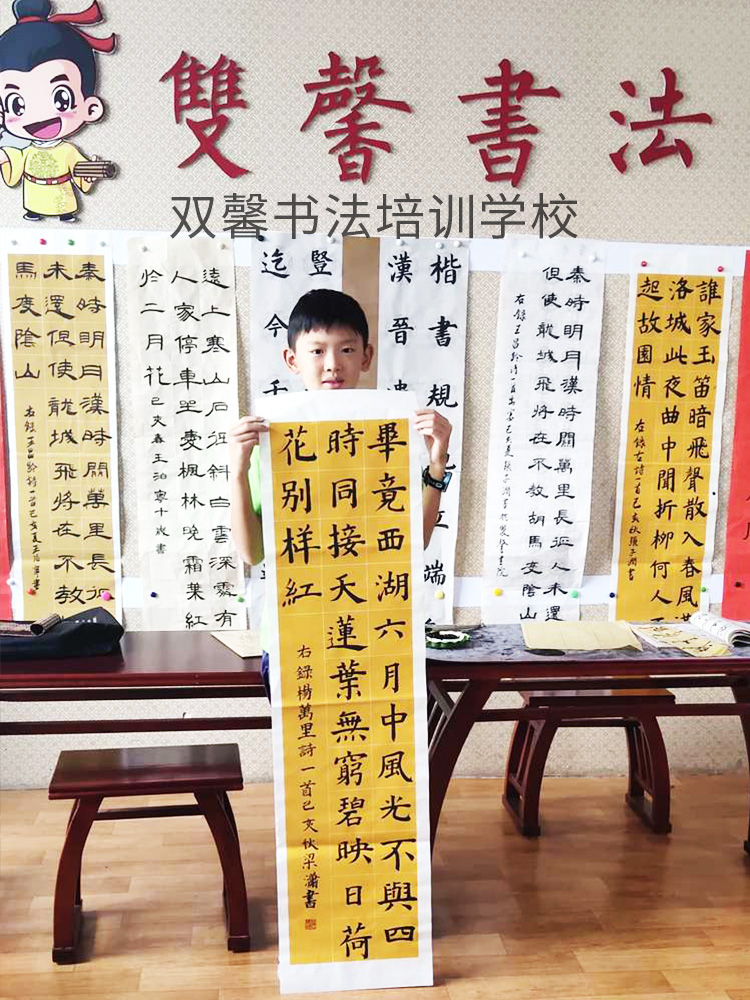 雙馨書法
双馨书法培训学校
秦時明月漢時關萬里長征
未還但使龍城飛將在不教
馬度陰山
遠上寒山石徑斜白雲深處有
人家停車坐愛楓林晚霜葉紅
於二月花
己亥春王泊寧十歲書
豎
迄今千
楷書規
端
漢晉
秦時明月漢時關萬里長征人未還
但使龍城飛將在不教胡馬度陰山
右錄王昌齡詩一首
誰家玉笛暗飛聲散入春風滿
洛城此夜曲中聞折柳何人不
起故園情
右錄古詩一首己亥秋張子潤書
畢竟西湖六月中風光不與四
時同接天蓮葉無窮碧映日荷
花别样紅
右録楊萬里詩一首己亥秋梁瀟書